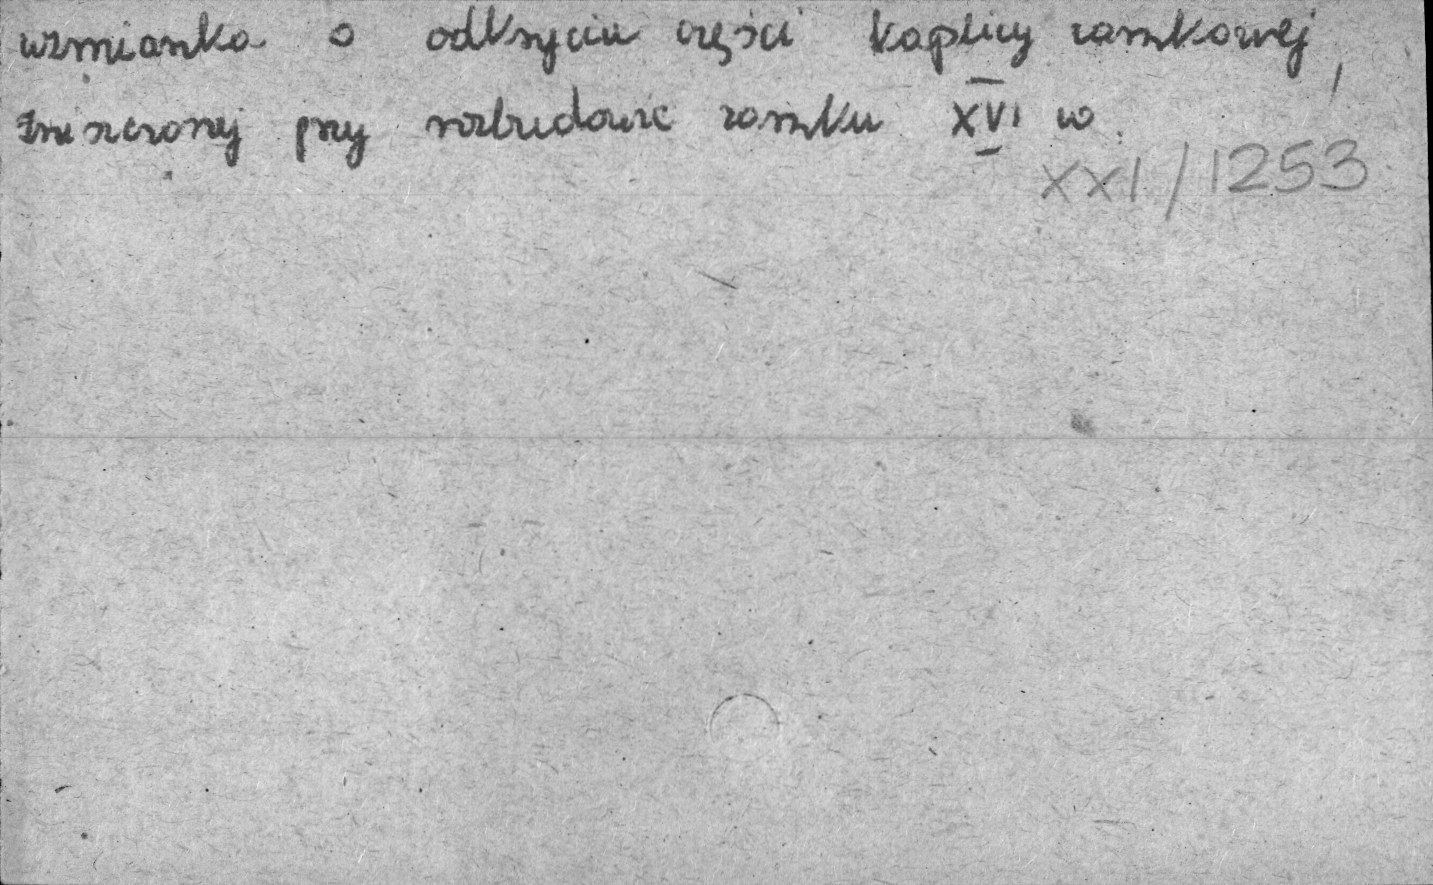 wzmianka o odkryciu części kaplicy zamkowej,
zniszczonej przy rozbudowie zamku XVI w.
XXI/1253